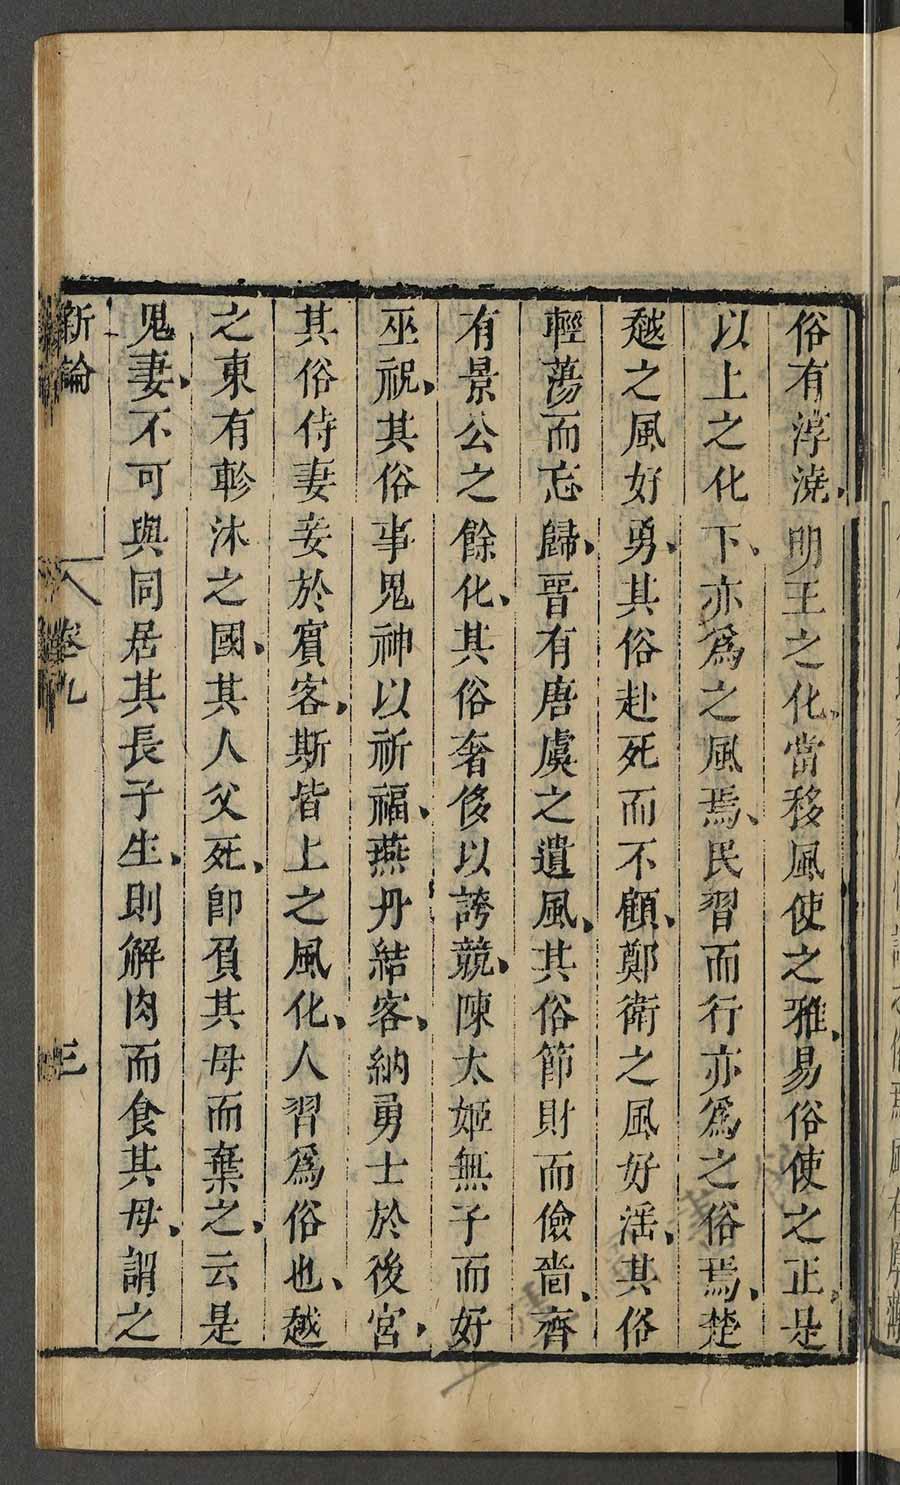 俗有淳澆、明王之化、當移風使之雅、易俗使之正、是
以上之化下、亦爲之風焉、民習而行亦爲之俗焉、楚
越之風好勇、其俗赴死而不顧、鄭衛之風好淫、其俗
輕蕩而忘歸、晉有唐虞之遺風、其俗節財而儉嗇、齊
有景公之餘化、其俗奢侈以誇競、陳太姬無子而好
巫祝、其俗事鬼神以祈福、燕丹結客、納勇士於後宮、
其俗侍妻妾於賓客、斯皆上之風化、人習爲俗也、越
之東有軫沐之國、其人父死、卽負其母而棄之、云是
鬼妻、不可與同居其長子生、則解肉而食其母、謂之
新論 卷九 三